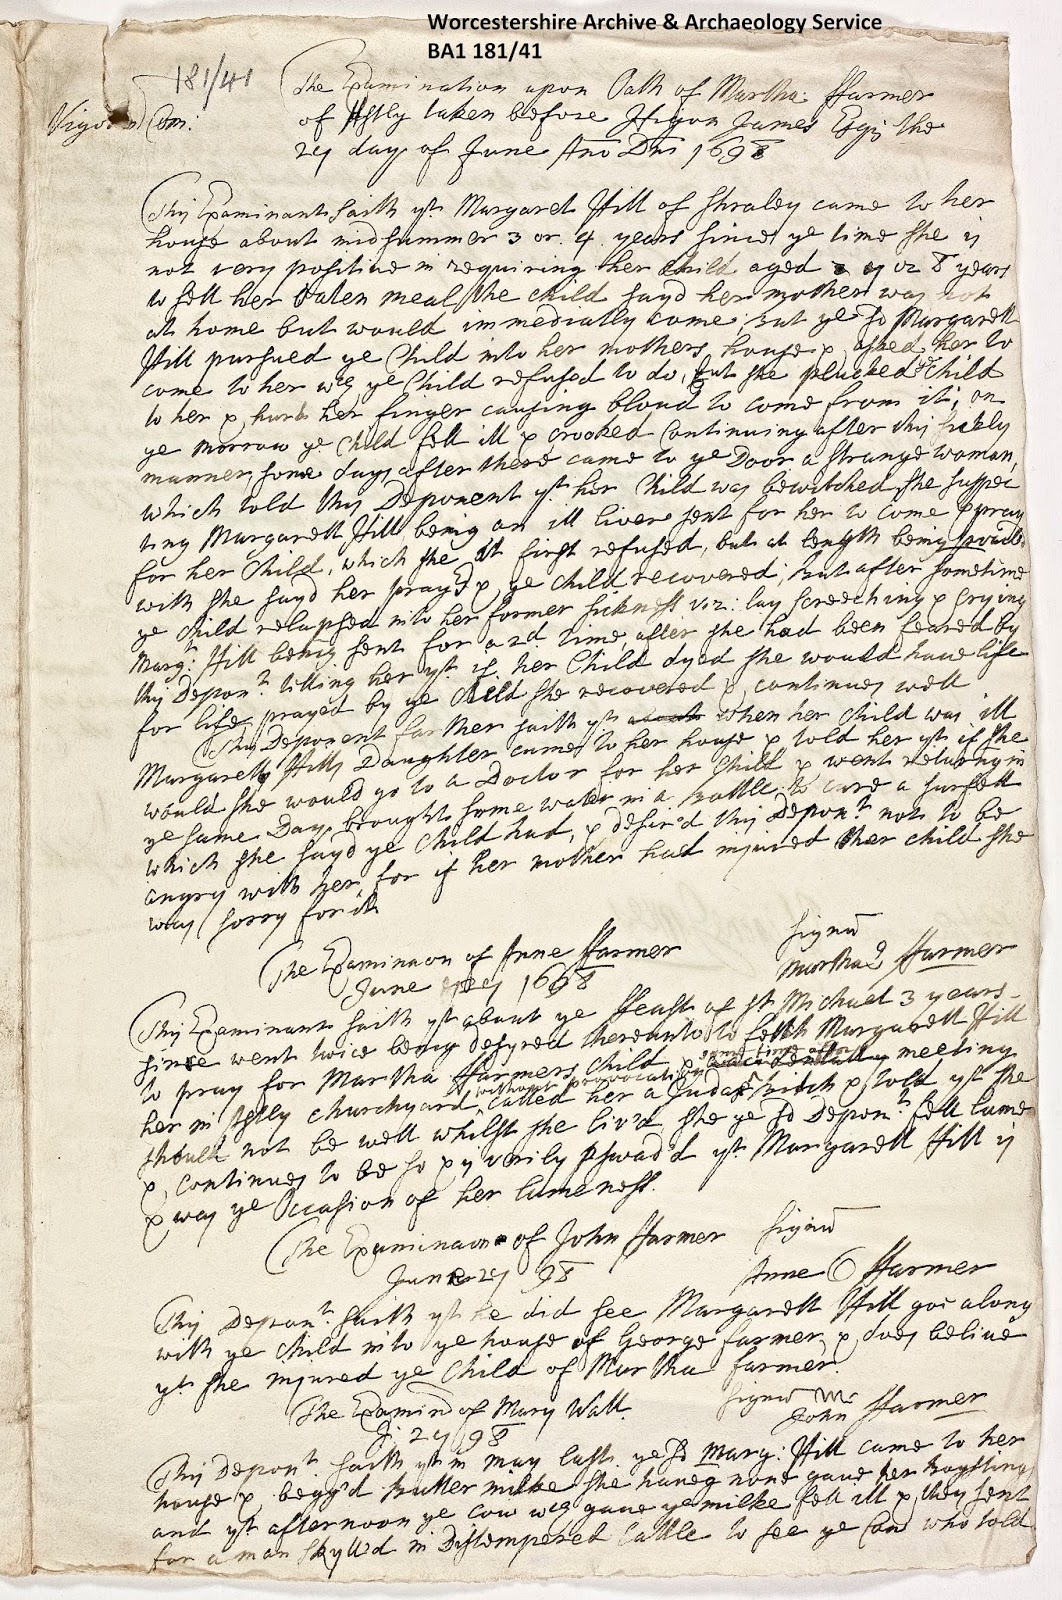 Worcestershire Archive & Archaeology Service
BA1 181/41
181/41
The Examination upon Oath of Martha ffarmer
of Astly taken before Higon James Esqr the
27 day of June Ano Dni 1698
Com:
This Examinant saith yt Margaret Hill of Shraley came to her
house about midsummer 3 or 4 years since ye time she is
not very positive in requiring her child aged 7 or 8 years
to sell her oaten meal, the child sayd her mother was not
at home but would immediatly come, but ye sd Margarett
Hill pursued ye Child into her mothers house & asked her to
come to her wch ye Child refused to do, but she plucked ye Child
to her & hurt her finger causing bloud to come from it; on
ye morrow ye child fell ill & crooked continuing after this sickly
manner, some days after there came to ye Door a strange woman,
which told this Deponent yt her Child was bewitched, she suspec
ting Margarett Hill being an ill liver sent for her to come & pray
for her Child, which she at first refused, but at length being
with she sayd her prayrs & ye child recovered; but after sometime
ye child relapsed into her former sickness viz: lay screeching & crying
Margt: Hill being sent for a 2d time, after she had been feared by
this Depont. telling her yt if her Child dyed she would have life
for life, prayed by ye Child she recovered & continues well
This Deponent farther saith yt when her child was ill
Margaretts Hills Daughter came to her house & told her yt if she
would she would go to a Doctor for her Child & went returning
ye same Day, brought some water in a bottle to cure a surfett
which she sayd ye Child had, & desir'd this Depont not to be
angry with her, for if her mother had injured her child she
was sorry for it
signu
Martha ffarmer
The Examinaon of Anne ffarmer
June 27 1698
This Examinant saith yt about ye feast of St Michael 3 years
since went twice being desyred thereunto to fetch Margarett Hill
to pray for Martha ffarmers Child & some time after meeting
her in Astly churchyard, without provocation called her a Judas bitch & told yt she
should not be well whilst she liv'd she ye sd Depont. fell lame
& continues to be so & is verily pswad'd yt Margarett Hill is
& was ye occasion of her lameness.
signu
Anne ffarmer
The Examinaon of John ffarmer
June 27 98
This Depont. saith yt he did see Margarett Hill goe along
with ye Child into ye house of George farmer, & does believe
yt she injured ye Child of Martha farmer.
signu
John ffarmer
The Examin of Mary Watt.
J: 27 98
This Depont. saith yt in may last ye sd Marg: Hill came to her
house & begg'd butter milke she haveg none gave her
and yt afternoon ye cow wch gave ye milke fell ill & they sent
for a man skyll'd in Distempered Cattle to see ye Cow who told